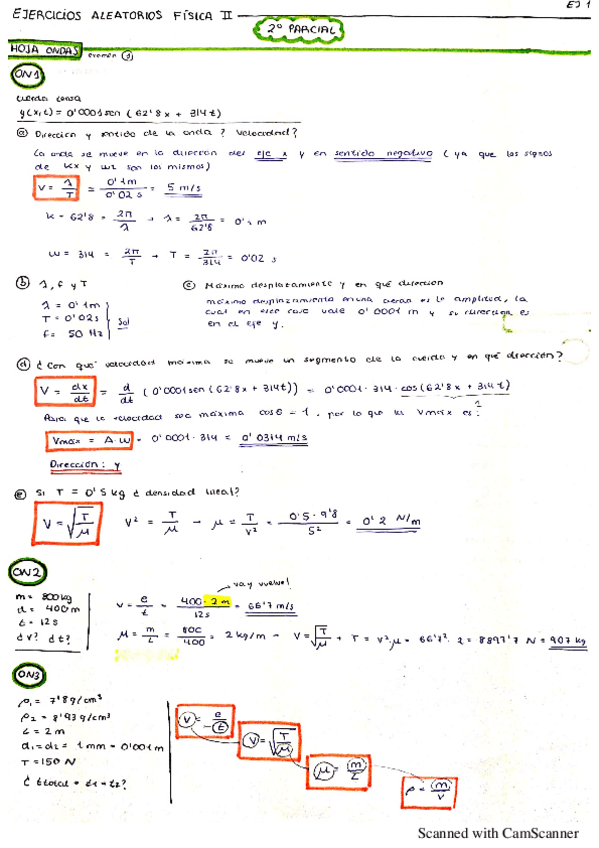 EJERCICIOS ALEATORIOS FÍSICA II
EJ 1
2º PARCIAL
HOJA ONDAS
examen ①
ON1
cuerda tensa
y(x,t) = 0'0001 sen (62'8x + 314t)
ⓐ Dirección y sentido de la onda? Velocidad?
La onda se mueve en la dirección del eje x y en sentido negativo (ya que los signos
de kx y wt son los mismos)
V = λ/T = 0'1m/0'02 s = 5 m/s
k = 62'8 = 2π/λ → λ = 2π/62'8 = 0'1 m
w = 314 = 2π/T → T = 2π/314 = 0'02 s
ⓑ λ, f y T
λ = 0'1m
T = 0'02s
f = 50 Hz
Sol
ⓒ Máximo desplazamiento y en qué dirección
máximo desplazamiento en una onda es la amplitud, la
cual en este caso vale 0'0001 m y su dirección es
en el eje y.
ⓓ ¿Con qué velocidad máxima se mueve un segmento de la cuerda y en qué dirección?
V = dx/dt = d/dt (0'0001 sen(62'8x + 314t)) = 0'0001 · 314 · cos(62'8x + 314t)
1
Para que la velocidad sea máxima cosθ = 1, por lo que la Vmáx es:
Vmáx = A·w = 0'0001 · 314 = 0'0314 m/s
Dirección: y
ⓔ Si T = 0'5 kg ¿densidad lineal?
V = √T/μ V² = T/μ → μ = T/V² = 0'5 · 9'8/5² = 0'2 N/m
ON2
m = 800kg
d = 400m
t = 12s
¿v? ¿t?
va y vuelve!
V = e/t = 400 · 2 m/12s = 66'7 m/s
μ = m/L = 800/400 = 2 kg/m → V = √T/μ → T = V²·μ = 66'7² · 2 = 8897'7 N = 907 kg
ON3
ρ₁ = 7'8g/cm³
ρ₂ = 8'93g/cm³
L = 2m
d₁ = d₂ = 1mm = 0'001m
T = 150 N
¿ttotal = t₁ + t₂?
V = e/t
V = √T/μ
μ = m/L
ρ = m/V
Scanned with CamScanner